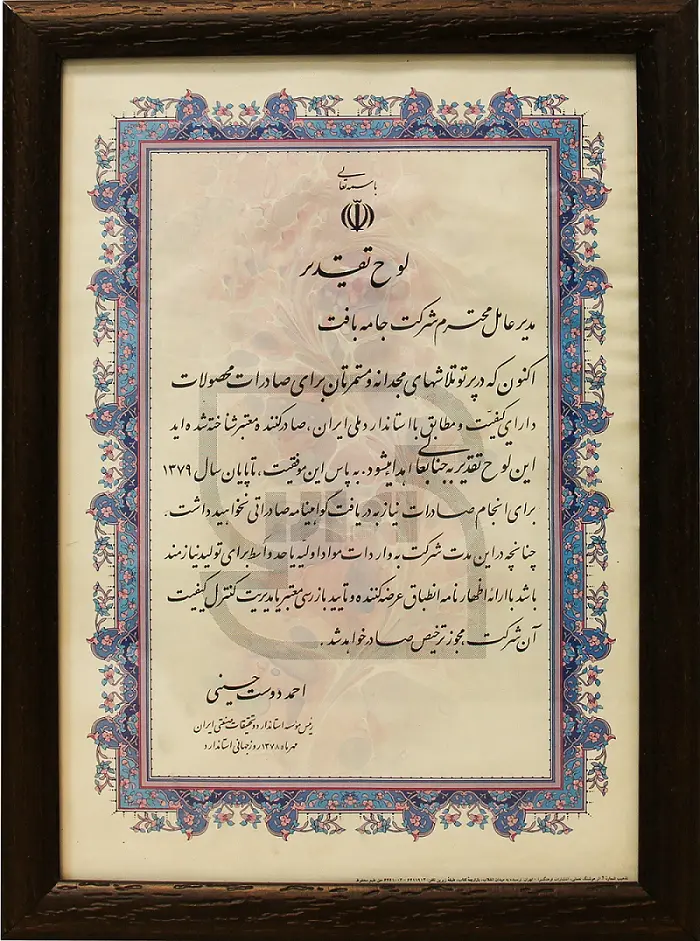 باسمه تعالی
لوح تقدیر
مدیر عامل محترم شرکت جامه بافت
اکنون که در پرتو تلاشهای مجدانه و مستمرتان برای صادرات محصولات
دارای کیفیت و مطابق با استاندارد ملی ایران، صادرکننده معتبر شناخته شده اید
این لوح تقدیر به جنابعالی اهدا میشود. به پاس این موفقیت، تا پایان سال ۱۳۷۹
برای انجام صادرات نیاز به دریافت گواهینامه صادراتی نخواهید داشت.
چنانچه در این مدت شرکت به واردات مواد اولیه یا حد واسط برای تولید نیازمند
باشد با ارائه اظهارنامه انطباق عرضه کننده و تایید بازرسی معتبر یا مدیریت کنترل کیفیت
آن شرکت، مجوز ترخیص صادر خواهد شد.
احمد دوست حسینی
رئیس مؤسسه استاندارد و تحقیقات صنعتی ایران
مهرماه ۱۳۷۸ روز جهانی استاندارد